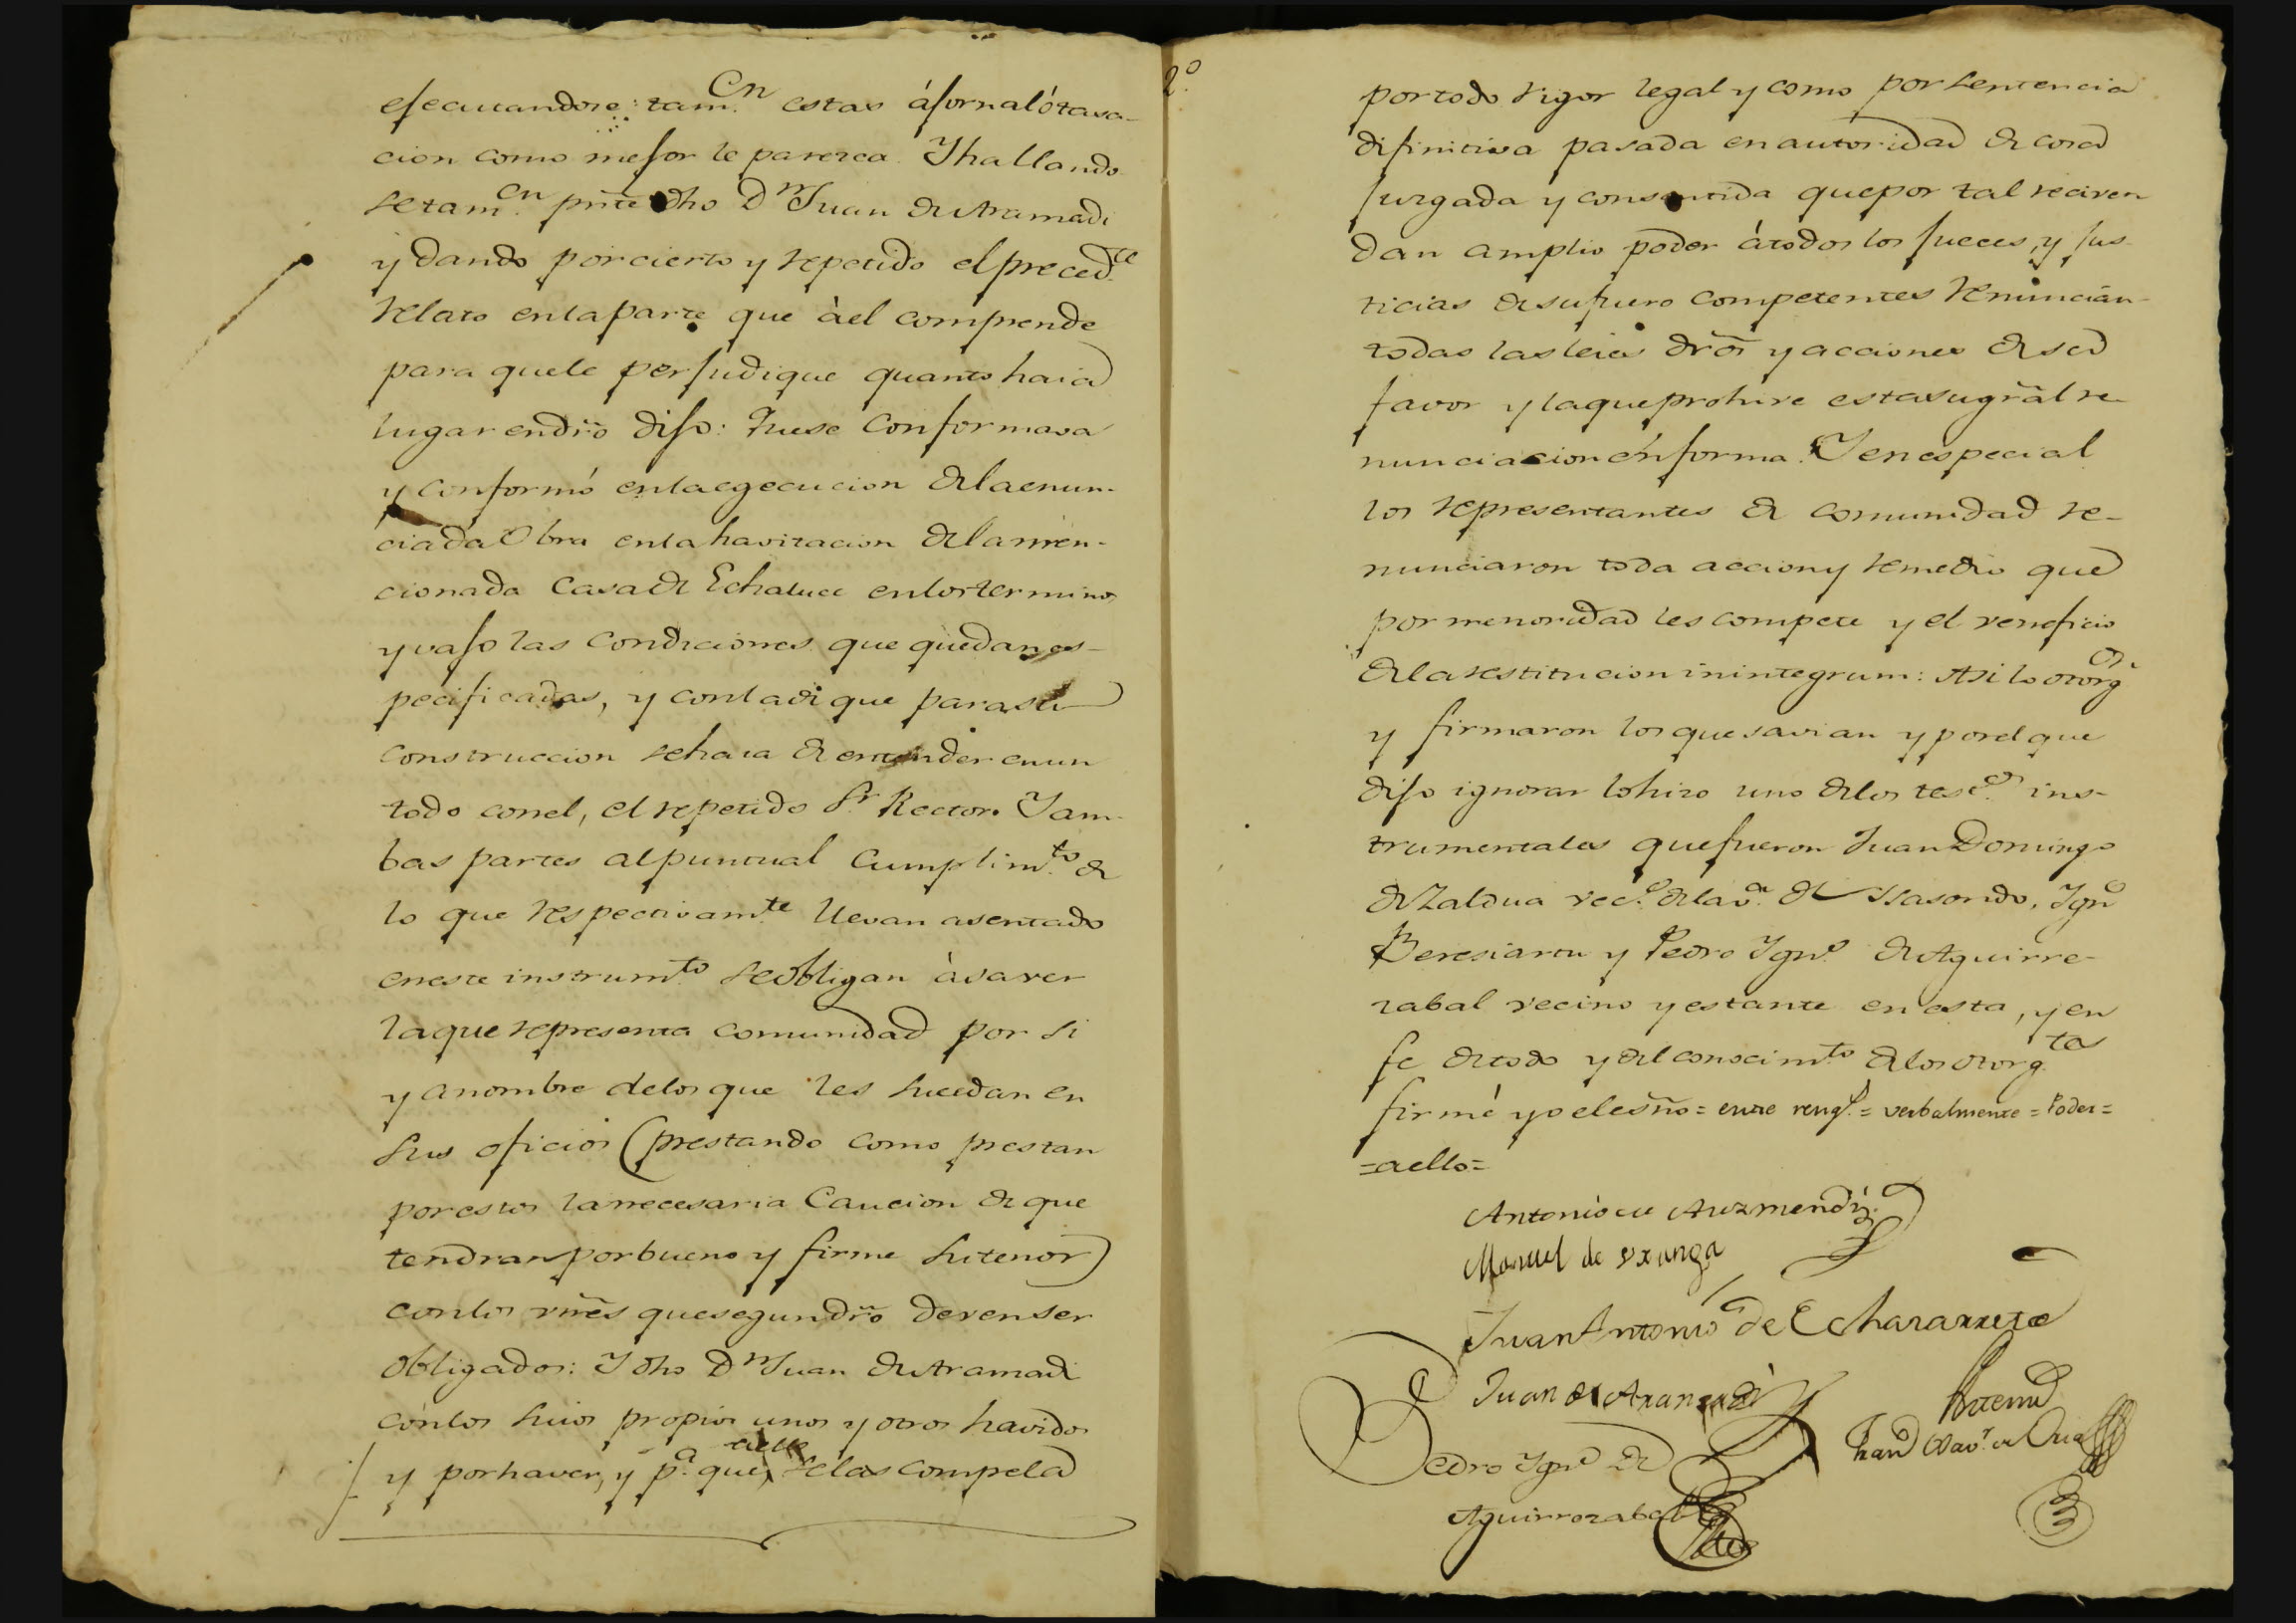 ejecutandose: tam.en estas á jornal ó tasa-
cion como mejor le parezca. Y hallando
se tam.en pñte dho Dn Juan de Aramadi
y dando por cierto y repetido el preced.te
relato en la parte que à el comprende
para que le perjudique quanto haia
lugar en dr̃o dijo: Que se conformava
y conformó en la egecucion de la enun-
ciada Obra en la havitacion de la men-
cionada Casa de Echaluce en los terminos
y vajo las condiciones que quedan es-
pecificadas, y con la de que para su
construccion se haia de entender en un
todo con el, el repetido Sr. Rector. Y am-
bas partes al puntual cumplim.to de
lo que respectivam.te llevan asentado
en este instrum.to se obligan à saver
la que representa comunidad por si
y a nombre de los que les sucedan en
sus oficios (prestando como prestan
por estos la necesaria Caucion de que
tendran por bueno y firme su tenor)
con los vñes que segun dr̃o deven ser
obligados: Y dho Dn Juan de Aramadi
con los suios propios unos y otros havidos
y por haver, y p.a que a ello se las compela
2.o
por todo rigor legal y como por sentencia
difinitiva pasada en autoridad de cosa
juzgada y consentida que por tal reciven
dan amplio poder à todos los jueces, y jus-
ticias de su fuero competentes renuncian
todas las leies dr̃os y acciones de su
favor y la que prohive esta su gr̃al re-
nunciacion en forma. Y en especial
los representantes de comunidad re-
nunciaron toda accion y remedio que
por menoridad les compete y el veneficio
de la restitucion in integrum: Asi lo otorg.on
y firmaron los que savian y por el que
dijo ignorar lo hizo uno de los test.os ins-
trumentales que fueron Juan Domingo
de Zaldua vec.o de la v.a de Ysasondo, Ign.o
Beresiartu y Pedro Ign.o de Aguirre-
zabal vecino y estante en esta, y en
fe de todo y del conocim.to de los otorg.tes
firmé yo el esño = entre rengl.s = verbalmente = Poder =
= a ello =
Antonio de Auzmendi
Manuel de Uranga
Juan Antonio de Echazarreta
Juan de Aramadi
Antemi
Pedro Ign.o de
Fran.co Xav.r de
Aguirrezabal